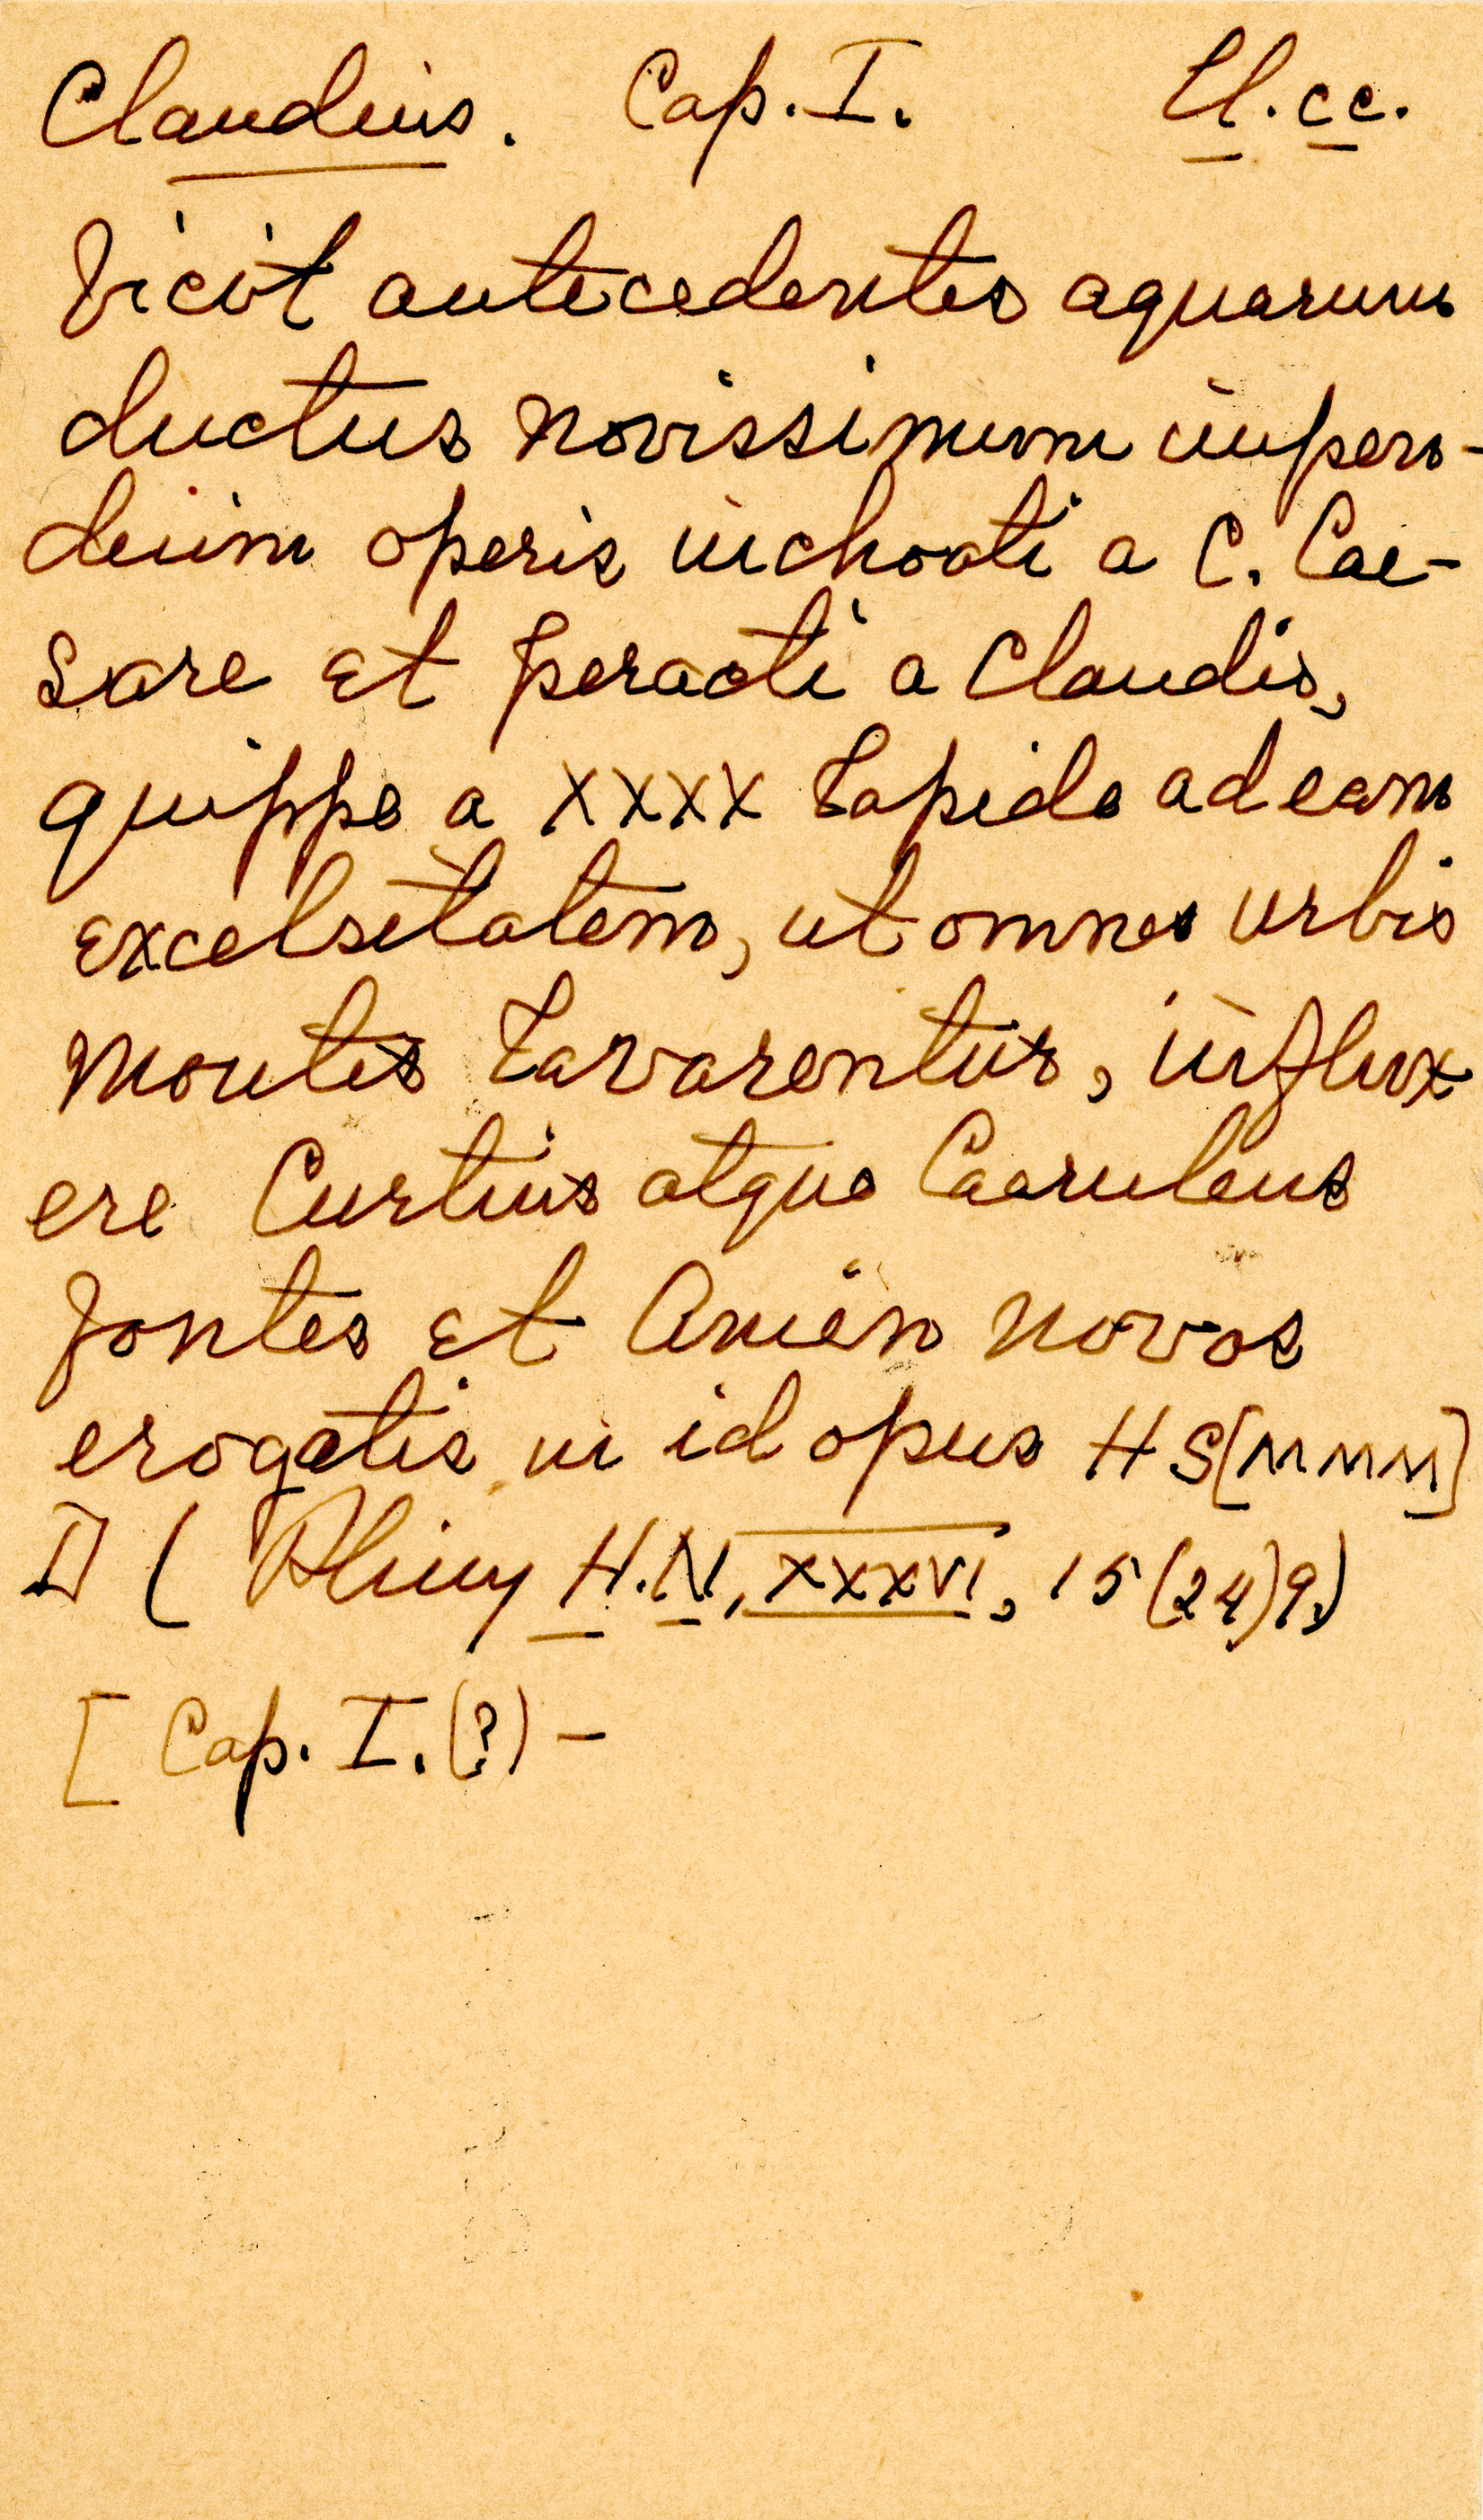 Claudius. Cap. I. Ll. cc.
Vicit antecedentes aquarum
ductus novissimum impen-
dium operis inchoati a C. Cae-
sare et peracti a Claudio,
quippe a XXXX lapide ad eam
excelsitatem, ut omnes urbis
montes lavarentur, influx
ere Curtius atque Caeruleus
fontes et Anien novos
erogatis in id opus HS[MMM]
D ( Pliny H.N, XXXVI, 15(24)9.)
[ Cap. I. (?) -